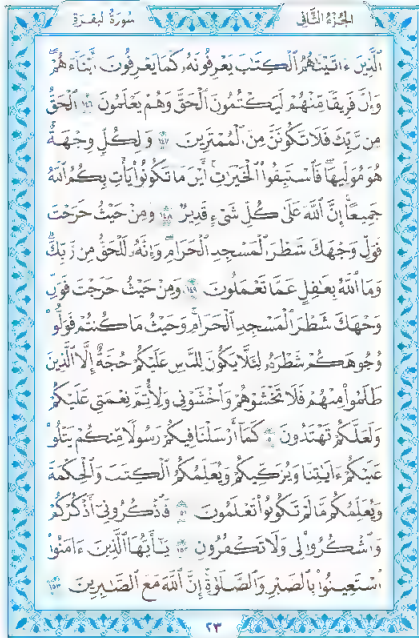 الجزء الثاني سورة البقرة
الَّذِينَ ءَاتَيْنَٰهُمُ الْكِتَٰبَ يَعْرِفُونَهُۥ كَمَا يَعْرِفُونَ أَبْنَآءَهُمْ
وَإِنَّ فَرِيقًا مِّنْهُمْ لَيَكْتُمُونَ الْحَقَّ وَهُمْ يَعْلَمُونَ ١٤٦ الْحَقُّ
مِن رَّبِّكَ فَلَا تَكُونَنَّ مِنَ الْمُمْتَرِينَ ١٤٧ وَلِكُلٍّ وِجْهَةٌ
هُوَ مُوَلِّيهَا فَاسْتَبِقُوا الْخَيْرَٰتِ أَيْنَ مَا تَكُونُوا يَأْتِ بِكُمُ اللَّهُ
جَمِيعًا إِنَّ اللَّهَ عَلَىٰ كُلِّ شَىْءٍ قَدِيرٌ ١٤٨ وَمِنْ حَيْثُ خَرَجْتَ
فَوَلِّ وَجْهَكَ شَطْرَ الْمَسْجِدِ الْحَرَامِ وَإِنَّهُۥ لَلْحَقُّ مِن رَّبِّكَ
وَمَا اللَّهُ بِغَٰفِلٍ عَمَّا تَعْمَلُونَ ١٤٩ وَمِنْ حَيْثُ خَرَجْتَ فَوَلِّ
وَجْهَكَ شَطْرَ الْمَسْجِدِ الْحَرَامِ وَحَيْثُ مَا كُنتُمْ فَوَلُّوا
وُجُوهَكُمْ شَطْرَهُۥ لِئَلَّا يَكُونَ لِلنَّاسِ عَلَيْكُمْ حُجَّةٌ إِلَّا الَّذِينَ
ظَلَمُوا مِنْهُمْ فَلَا تَخْشَوْهُمْ وَاخْشَوْنِى وَلِأُتِمَّ نِعْمَتِى عَلَيْكُمْ
وَلَعَلَّكُمْ تَهْتَدُونَ ١٥٠ كَمَآ أَرْسَلْنَا فِيكُمْ رَسُولًا مِّنكُمْ يَتْلُوا
عَلَيْكُمْ ءَايَٰتِنَا وَيُزَكِّيكُمْ وَيُعَلِّمُكُمُ الْكِتَٰبَ وَالْحِكْمَةَ
وَيُعَلِّمُكُم مَّا لَمْ تَكُونُوا تَعْلَمُونَ ١٥١ فَاذْكُرُونِىٓ أَذْكُرْكُمْ
وَاشْكُرُوا لِى وَلَا تَكْفُرُونِ ١٥٢ يَٰٓأَيُّهَا الَّذِينَ ءَامَنُوا
اسْتَعِينُوا بِالصَّبْرِ وَالصَّلَوٰةِ إِنَّ اللَّهَ مَعَ الصَّٰبِرِينَ ١٥٣
٢٣